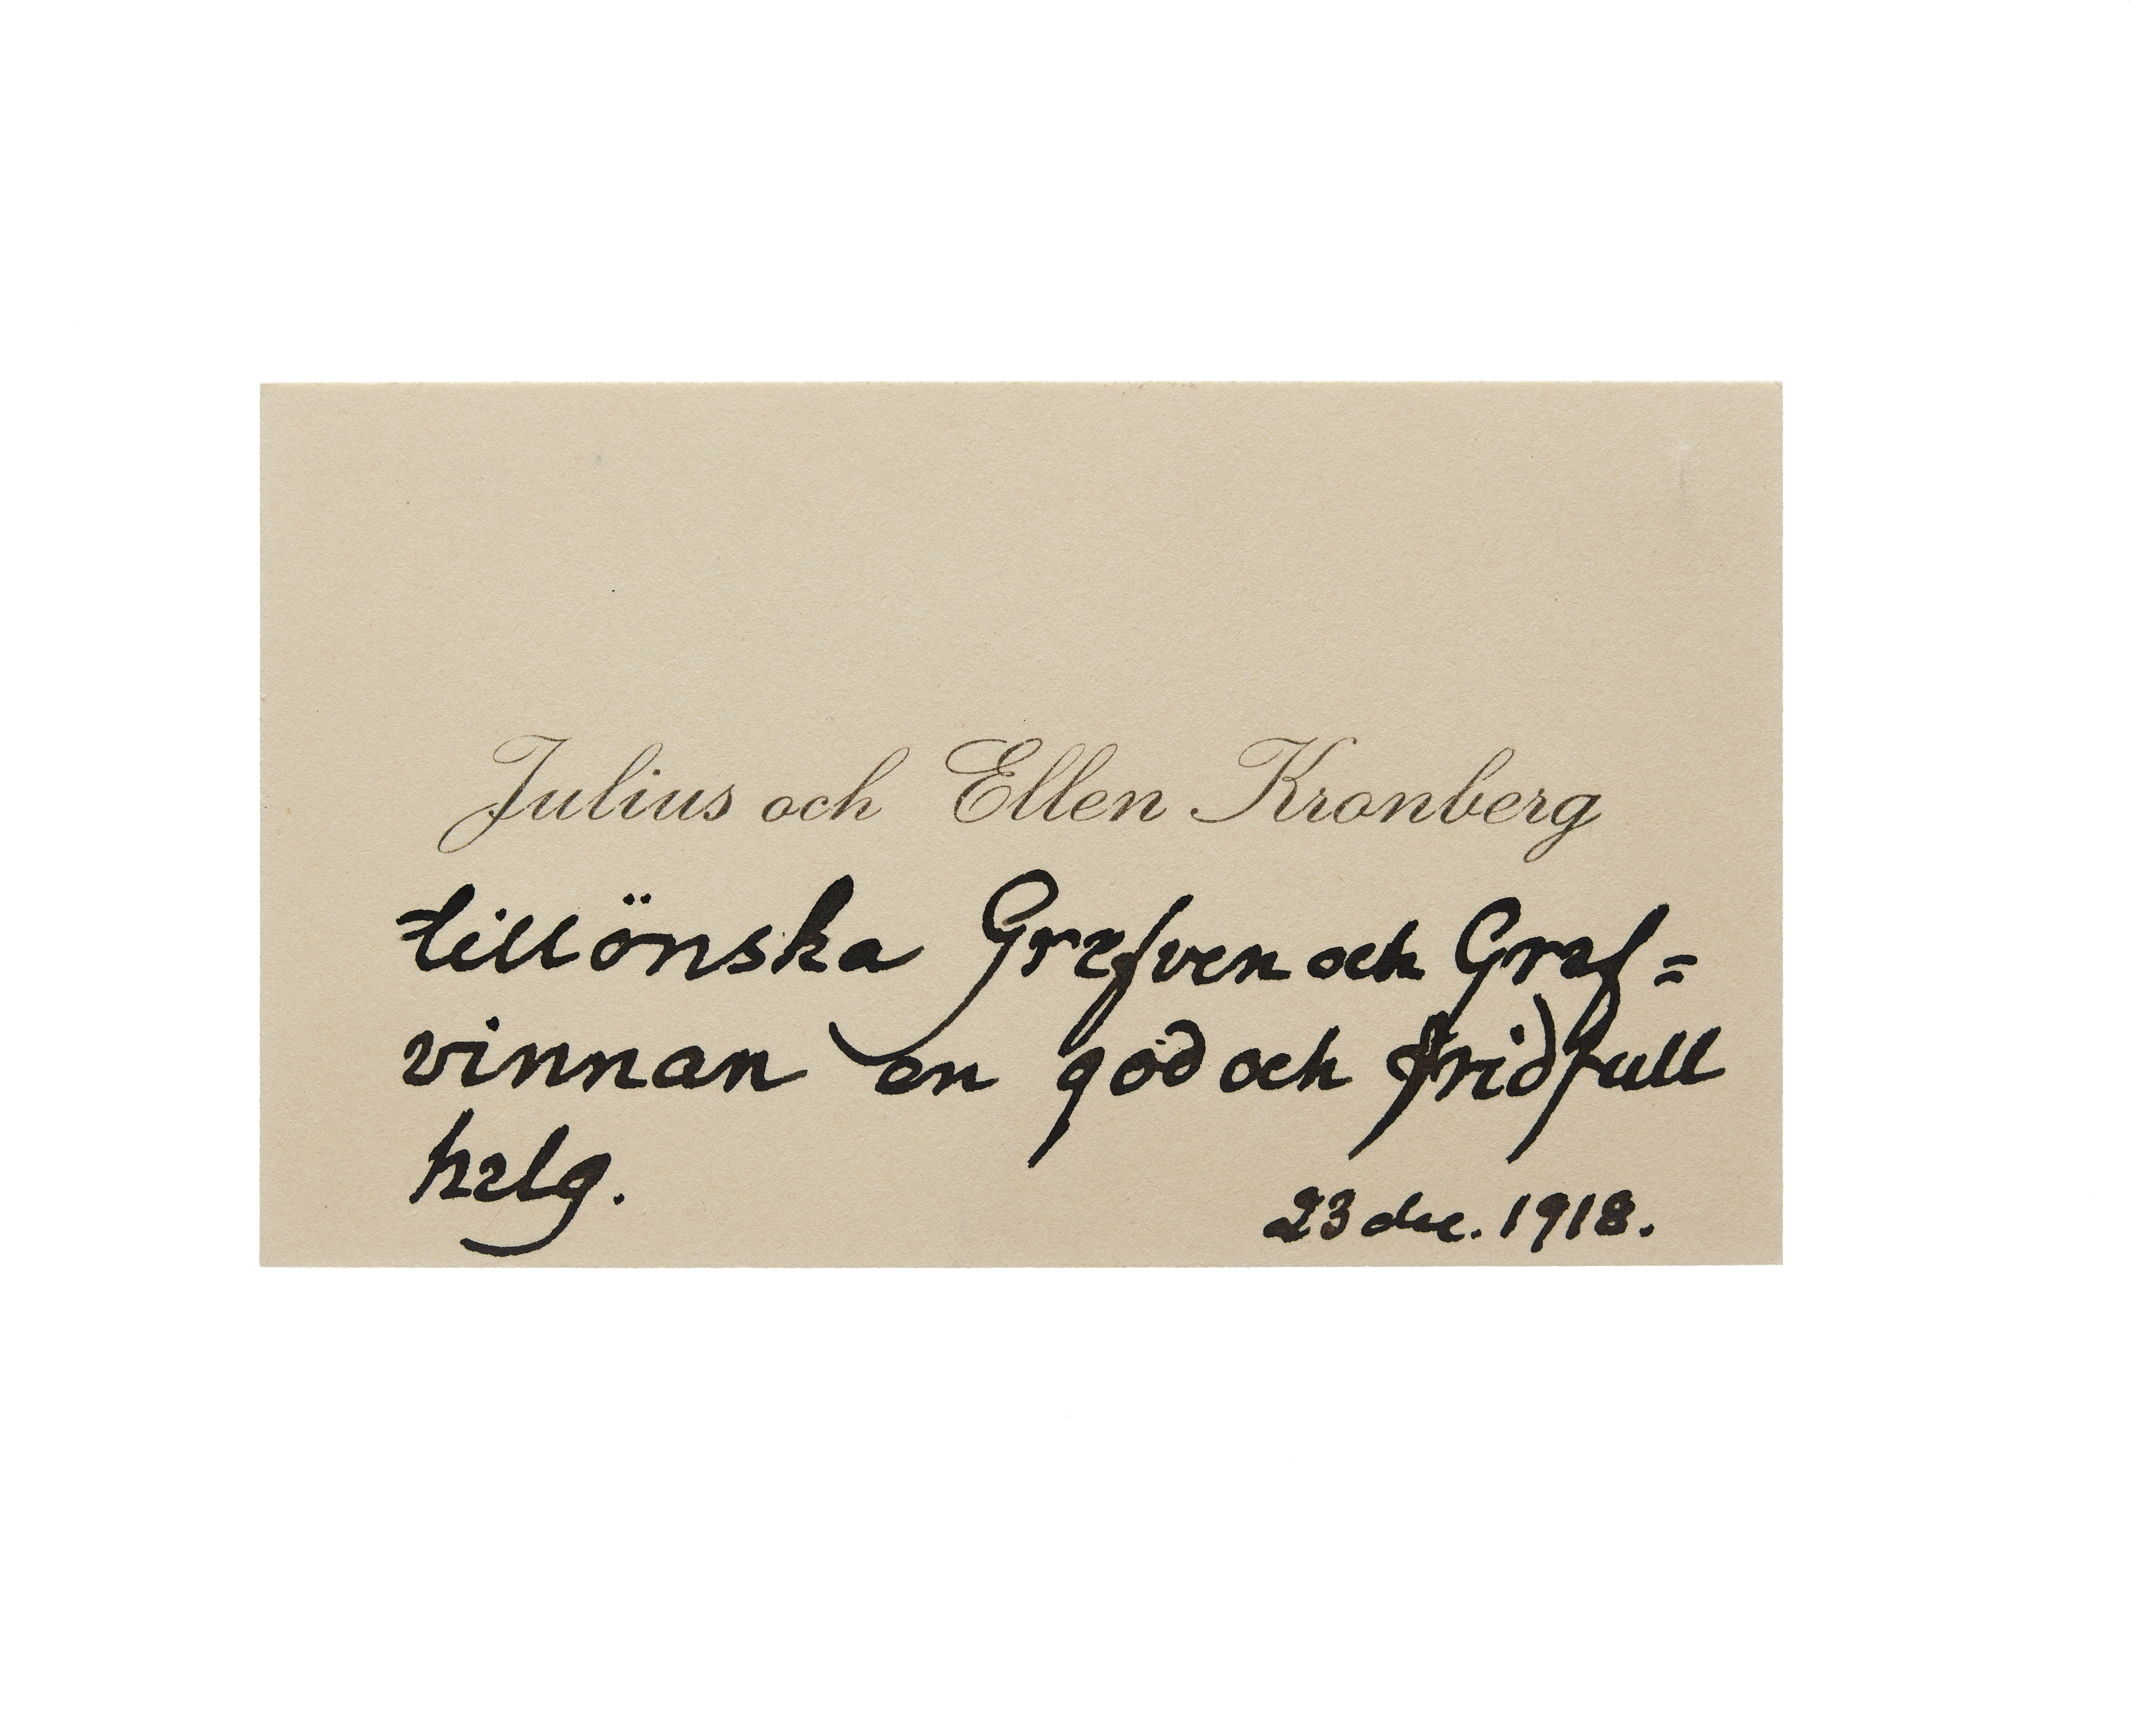 Julius och Ellen Kronberg
tillönska Grefven och Gref=
vinnan en god och fridfull
helg.
23 dec. 1918.